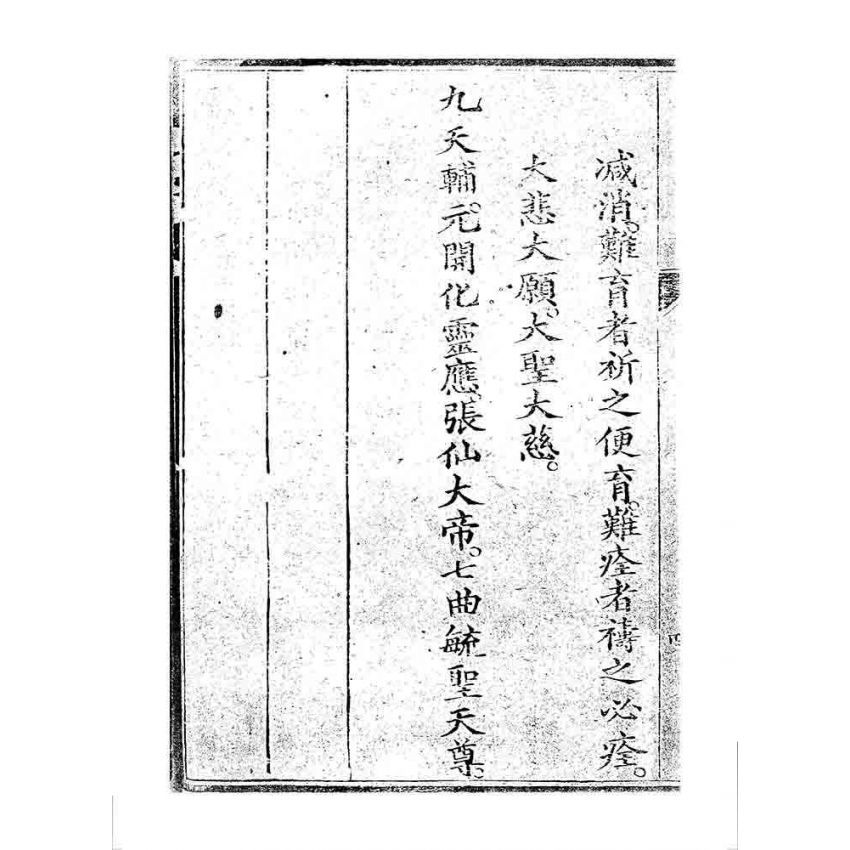 減消。難育者祈之便育。難痊者禱之必痊。
大悲大願。大聖大慈。
九天輔元開化。靈應張仙大帝。七曲毓聖天尊。
四